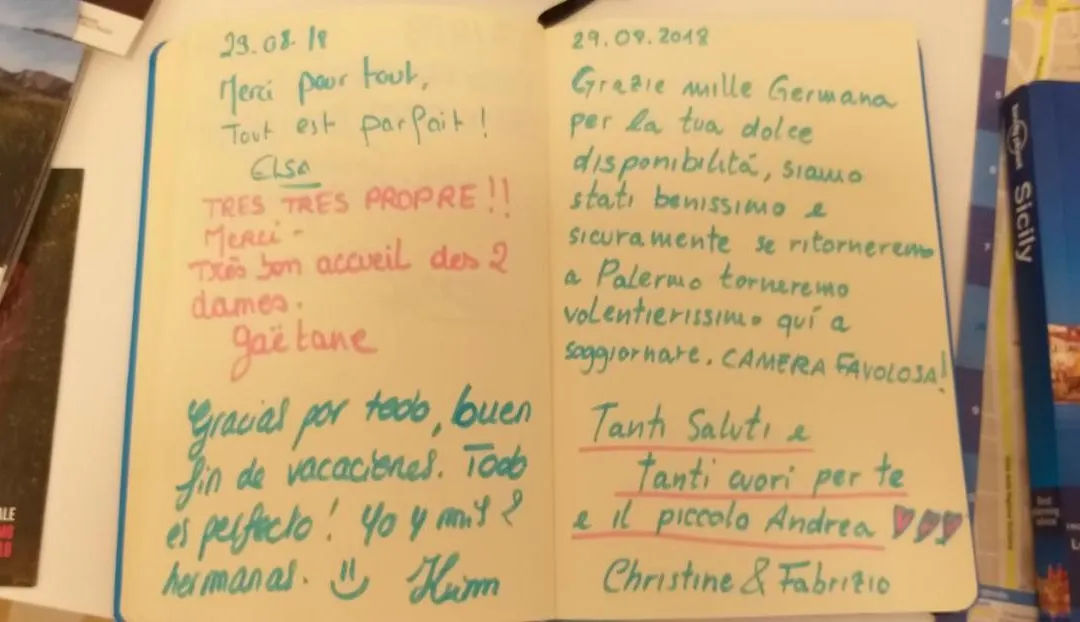 29.08.18
Merci pour tout,
Tout est parfait !
ELSA
TRES TRES PROPRE !!
Merci -
Très bon accueil des 2
dames.
Gaëtane
Gracias por todo, buen
fin de vacaciones. Todo
es perfecto ! Yo y mis 2
hermanas.
29.08.2018
Grazie mille Germana
per la tua dolce
disponibilitá, siamo
stati benissimo e
sicuramente se ritorneremo
a Palermo torneremo
volentierissimo quí a
soggiornare. CAMERA FAVOLOSA!
Tanti Saluti e
tanti cuori per te
e il piccolo Andrea
Christine & Fabrizio
lonely planet
Sicily